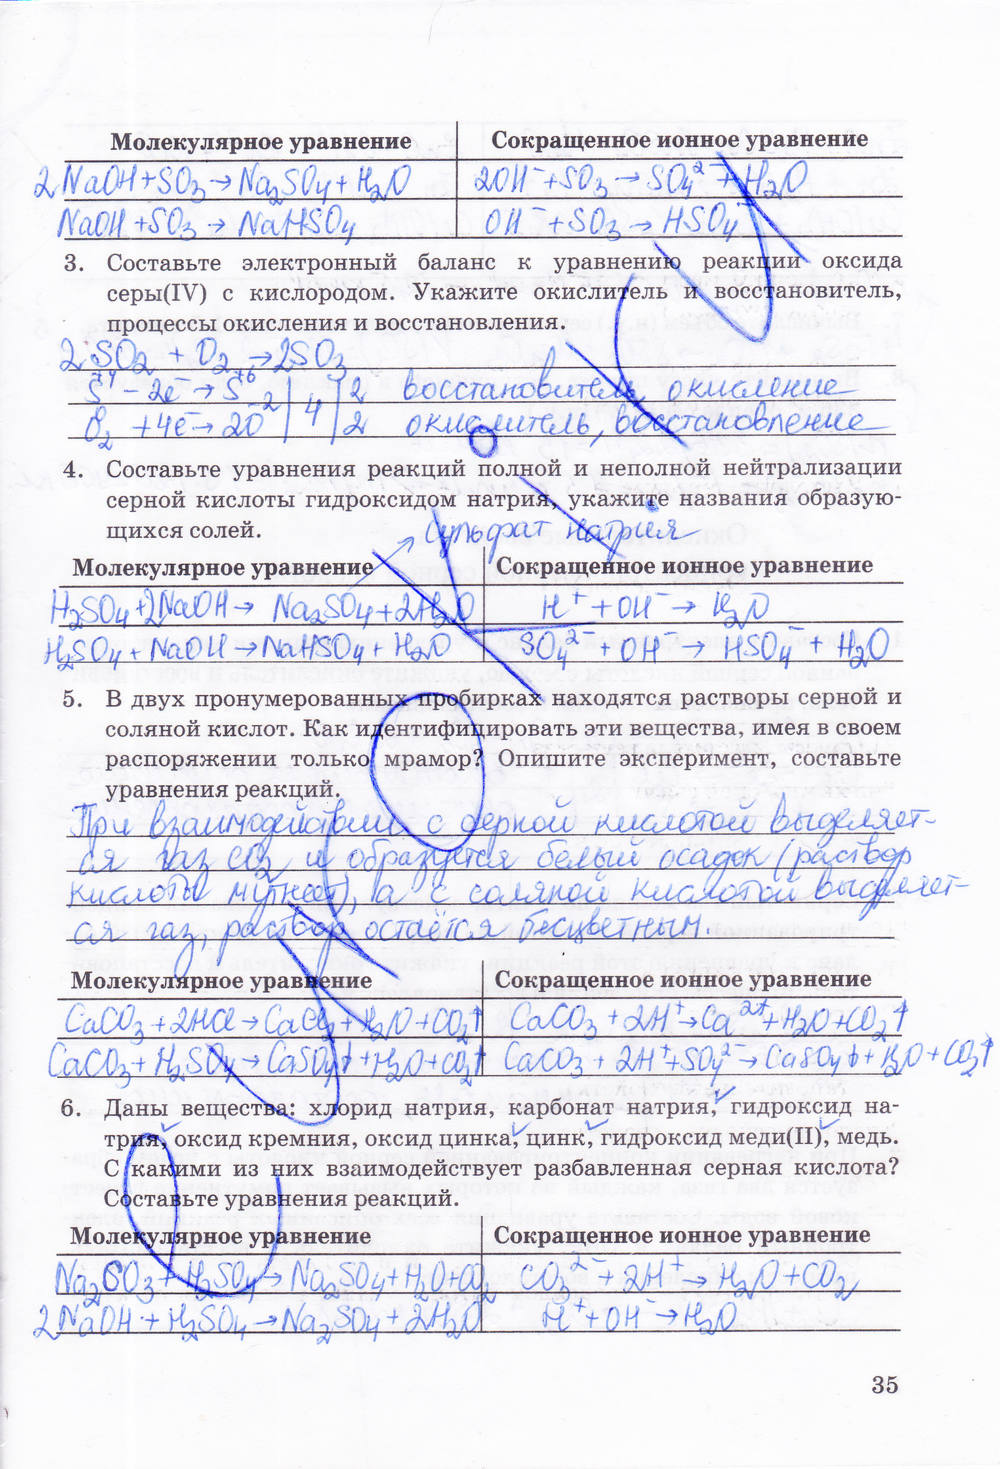 Молекулярное уравнение Сокращенное ионное уравнение
2NaOH + SO3 → Na2SO4 + H2O 2OH⁻ + SO3 → SO4²⁻ + H2O
NaOH + SO3 → NaHSO4 OH⁻ + SO3 → HSO4⁻
3. Составьте электронный баланс к уравнению реакции оксида
серы(IV) с кислородом. Укажите окислитель и восстановитель,
процессы окисления и восстановления.
2SO2 + O2 → 2SO3
S⁺⁴ - 2e⁻ → S⁺⁶ | 4 | 2 восстановитель, окисление
O2 + 4e⁻ → 2O⁻² | | 2 окислитель, восстановление
4. Составьте уравнения реакций полной и неполной нейтрализации
серной кислоты гидроксидом натрия, укажите названия образую-
щихся солей.
сульфат натрия
Молекулярное уравнение Сокращенное ионное уравнение
H2SO4 + 2NaOH → Na2SO4 + 2H2O H⁺ + OH⁻ → H2O
H2SO4 + NaOH → NaHSO4 + H2O SO4²⁻ + OH⁻ → HSO4⁻ + H2O
5. В двух пронумерованных пробирках находятся растворы серной и
соляной кислот. Как идентифицировать эти вещества, имея в своем
распоряжении только мрамор? Опишите эксперимент, составьте
уравнения реакций.
При взаимодействии с серной кислотой выделяет-
ся газ CO2 и образуется белый осадок (раствор
кислоты мутнеет), а с соляной кислотой выделяет-
ся газ, раствор остаётся бесцветным.
Молекулярное уравнение Сокращенное ионное уравнение
CaCO3 + 2HCl → CaCl2 + H2O + CO2↑ CaCO3 + 2H⁺ → Ca²⁺ + H2O + CO2↑
CaCO3 + H2SO4 → CaSO4↓ + H2O + CO2↑ CaCO3 + 2H⁺ + SO4²⁻ → CaSO4↓ + H2O + CO2↑
6. Даны вещества: хлорид натрия, карбонат натрия, гидроксид на-
трия, оксид кремния, оксид цинка, цинк, гидроксид меди(II), медь.
С какими из них взаимодействует разбавленная серная кислота?
Составьте уравнения реакций.
Молекулярное уравнение Сокращенное ионное уравнение
Na2CO3 + H2SO4 → Na2SO4 + H2O + CO2 CO3²⁻ + 2H⁺ → H2O + CO2
2NaOH + H2SO4 → Na2SO4 + 2H2O H⁺ + OH⁻ → H2O
35